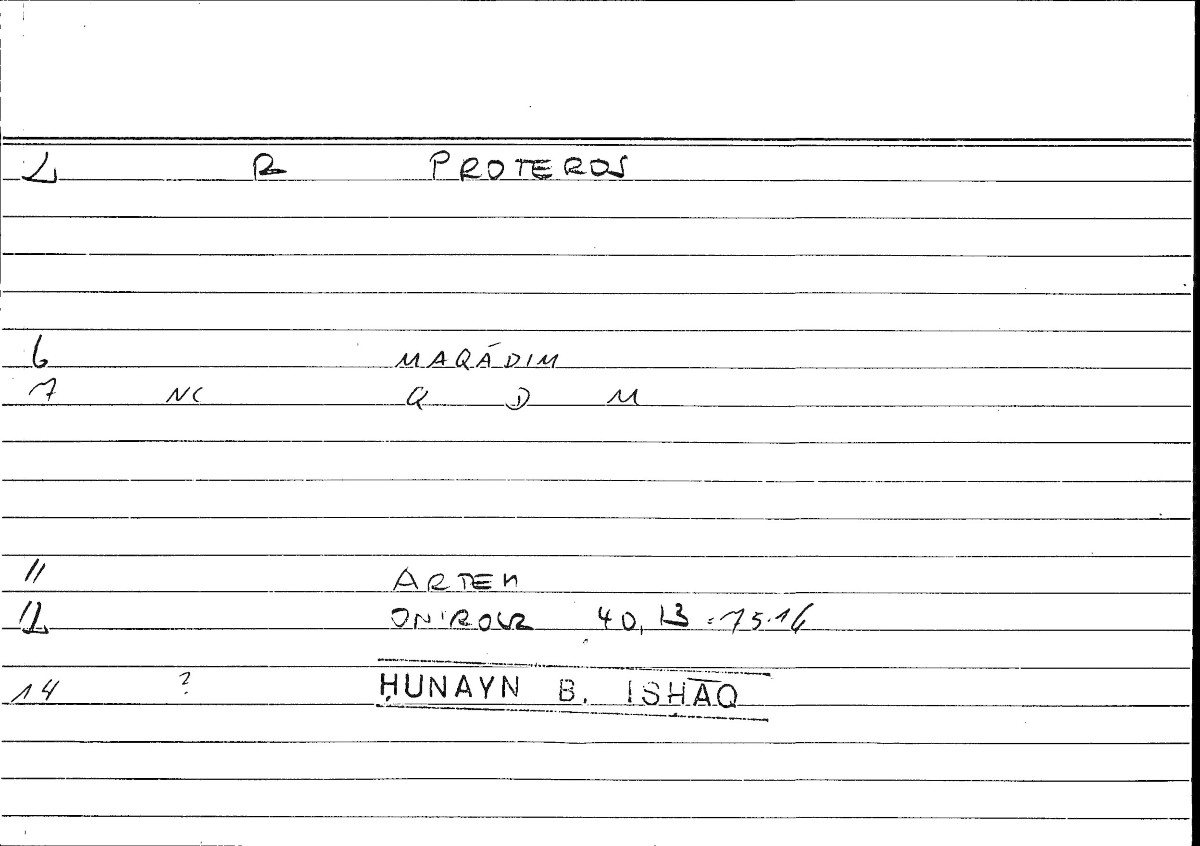 2 R PROTEROS
6 MAQĀDIM
7 NC Q D M
11 ARTEM
12 ONIROCR 40,13 = 75.16
14 ? ḤUNAYN B. ISḤĀQ